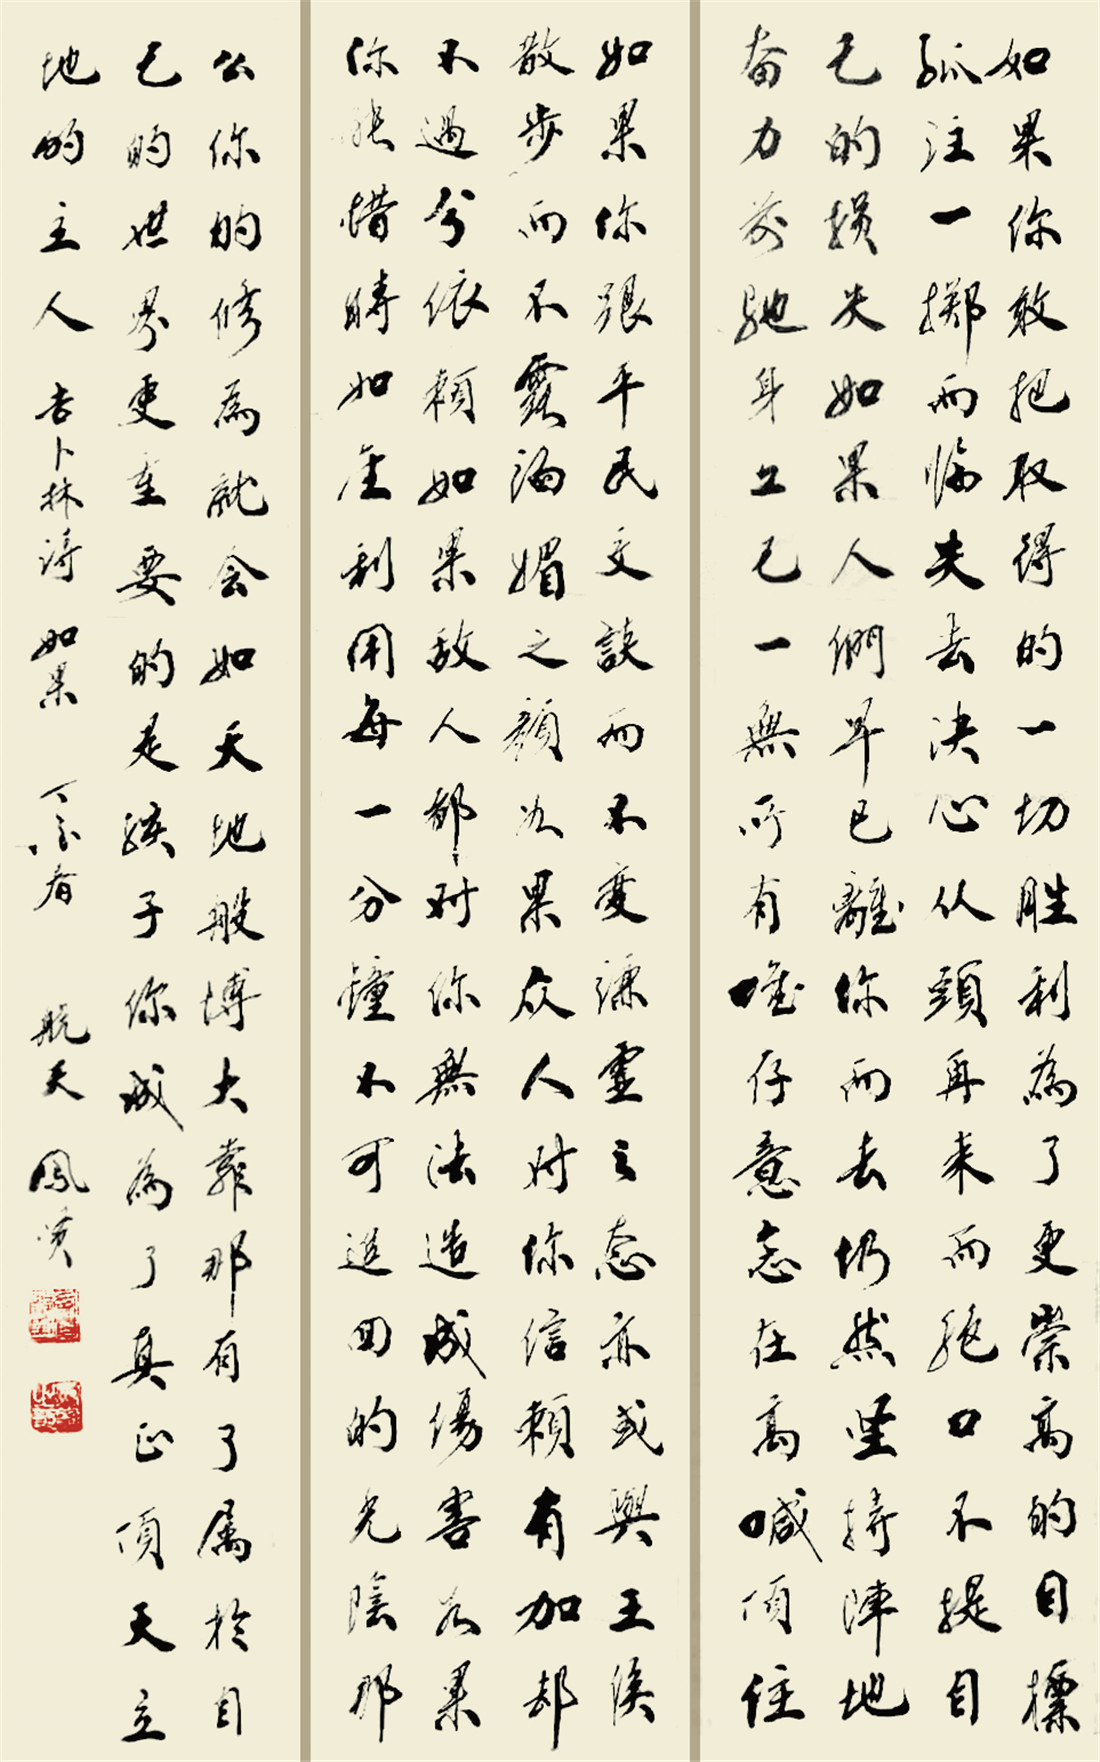 如果你敢把取得的一切胜利為了更崇高的目標
孤注一掷而临失去决心从頭再来而绝口不提自
己的损失如果人們早已離你而去仍然坚持陣地
奋力前驰身上已一無所有唯存意志在高喊顶住
如果你跟平民交談而不變謙虚之态亦或與王侯
散步而不露諂媚之颜如果众人对你信賴有加却
不過分依賴如果敌人都对你無法造成傷害如果
你能惜時如金利用每一分鐘不可追回的光陰那
么你的修為就会如天地般博大那有了属於自
己的世界更重要的是孩子你成為了真正顶天立
地的主人 吉卜林詩 如果 春 航天 鳳